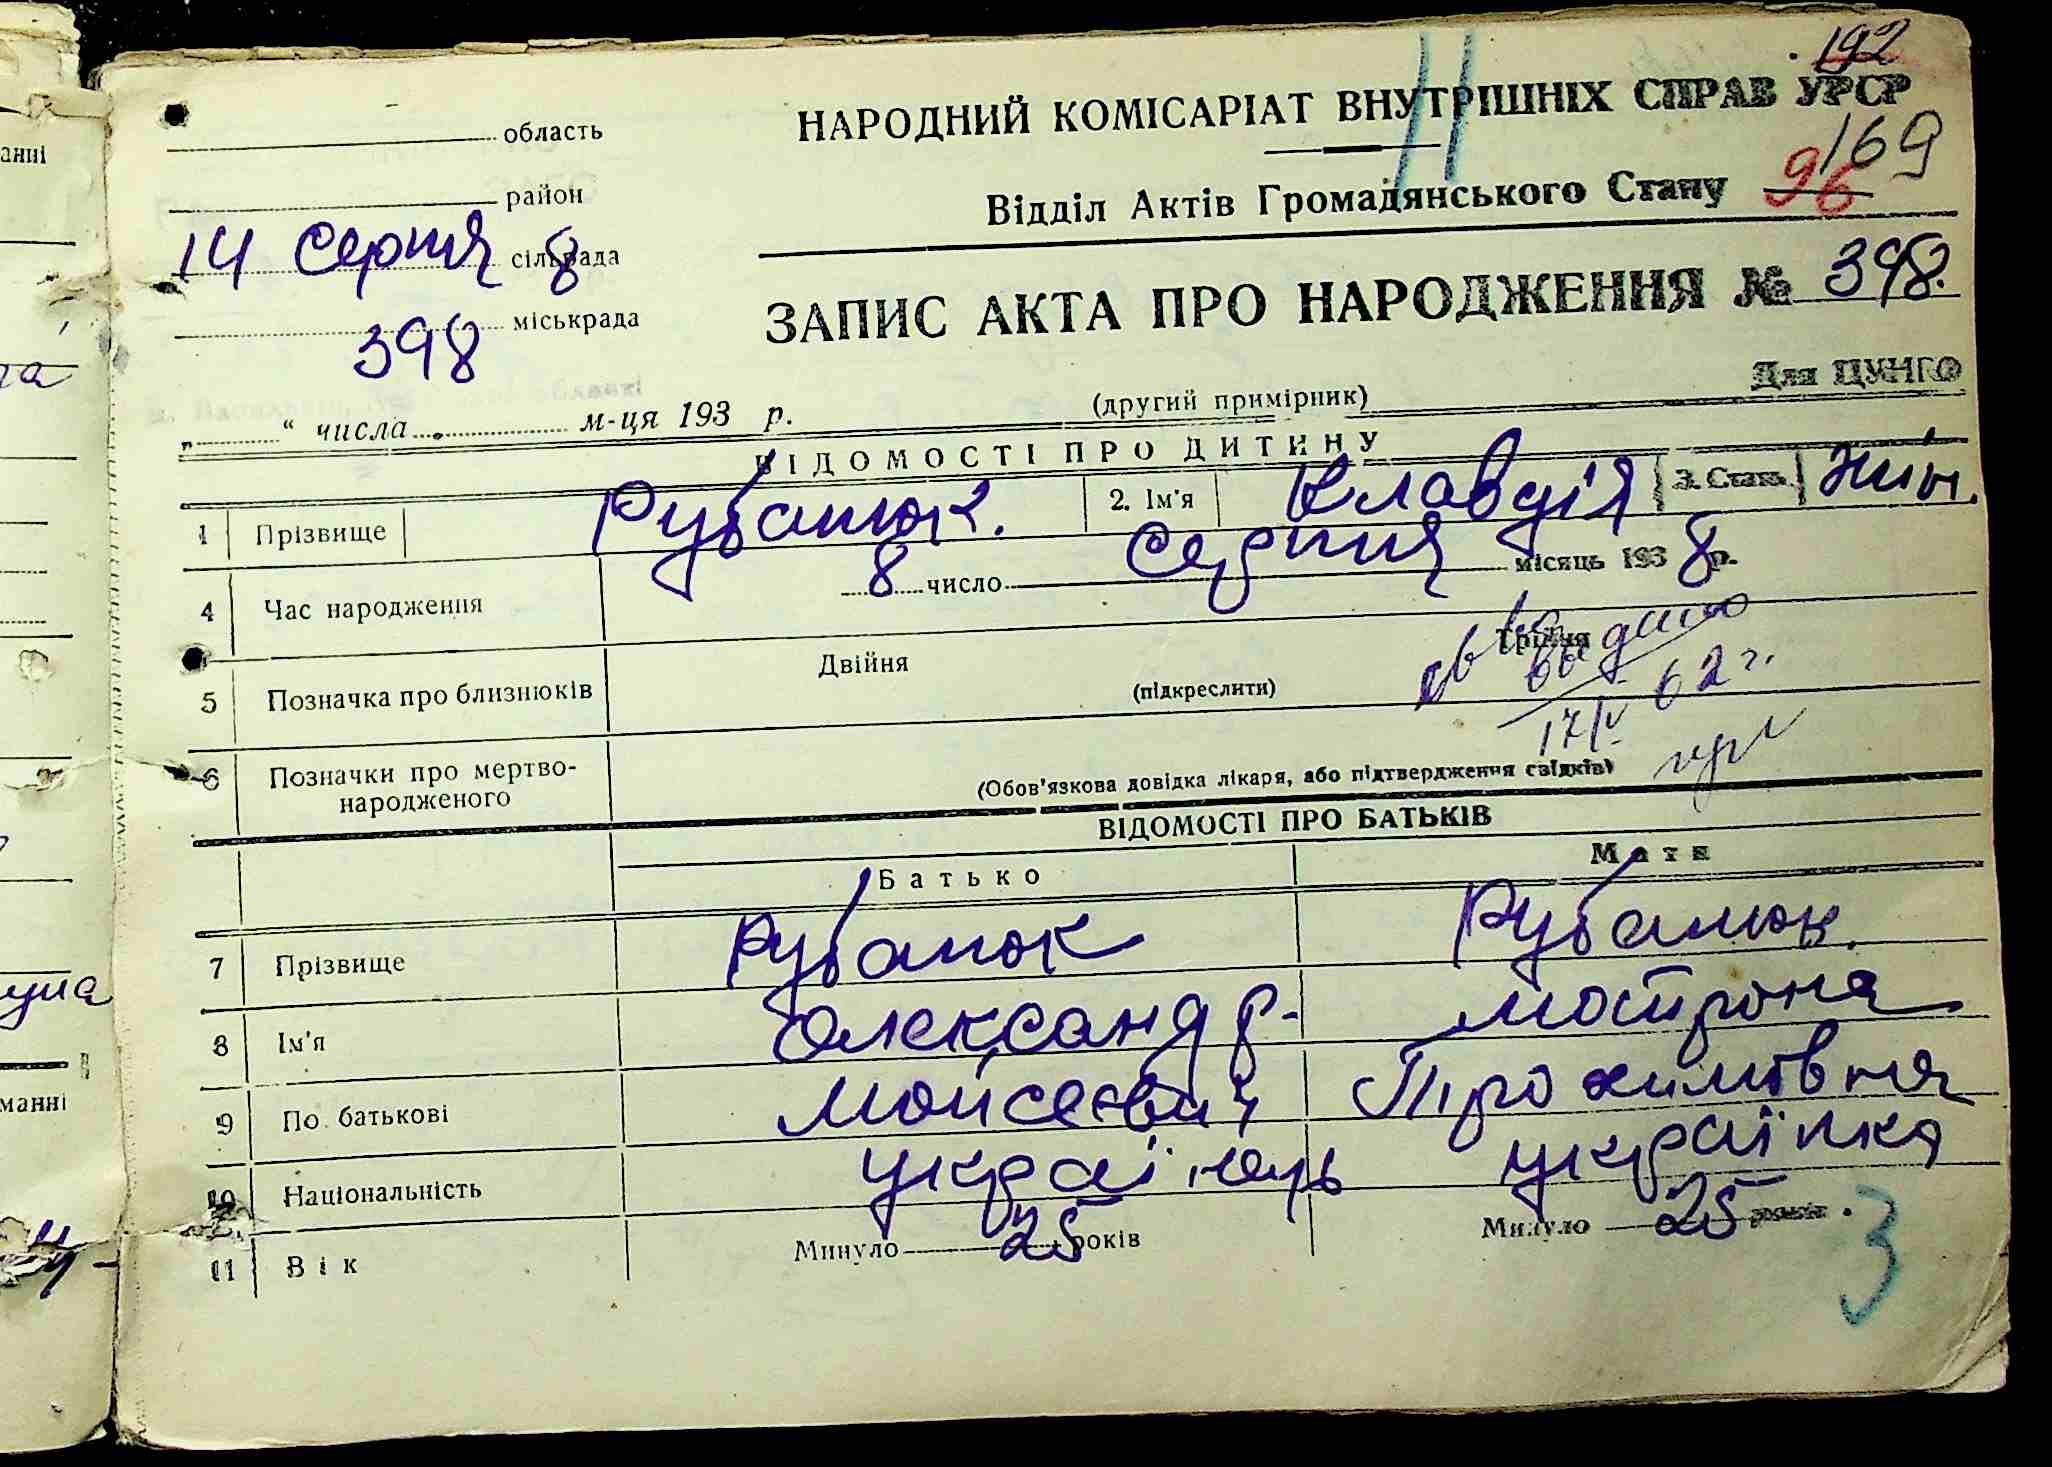 192
НАРОДНИЙ КОМІСАРІАТ ВНУТРІШНІХ СПРАВ УРСР
область
169
96
Відділ Актів Громадянського Стану
район
14 Серпня 8 сільрада
ЗАПИС АКТА ПРО НАРОДЖЕННЯ № 398.
398 міськрада
Для ЦУНГО
(другий примірник)
„ “ числа м-ця 193 р.
ВІДОМОСТІ ПРО ДИТИНУ
1 Прізвище Рубанюк. 2. Ім'я Клавдія 3. Стать Жін.
4 Час народження 8 число Серпня місяць 1938 р.
5 Позначка про близнюків Двійня (підкреслити) Трійня
выдано
17/V 62 г.
6 Позначки про мертво-
народженого (Обов'язкова довідка лікаря, або підтвердження свідків)
ВІДОМОСТІ ПРО БАТЬКІВ
Батько Мати
7 Прізвище Рубанюк Рубанюк.
8 Ім'я Олександр- Мотрона
9 По батькові Мойсеєвич
10 Національність українець українка
11 Вік Минуло 25 років Минуло 25 років
3
анні
манні